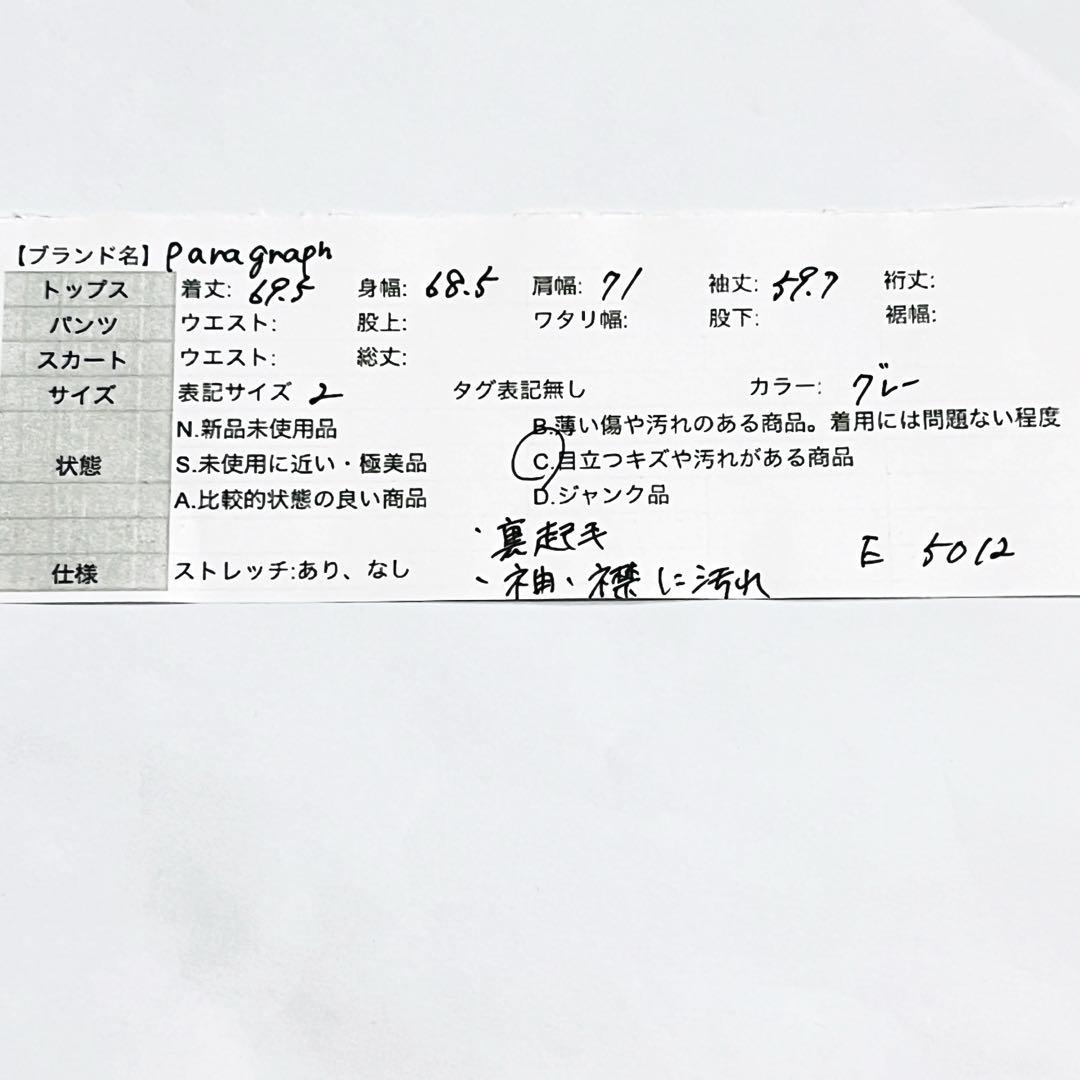 【ブランド名】 paragraph
トップス 着丈: 69.5 身幅: 68.5 肩幅: 71 袖丈: 59.7 裄丈:
パンツ ウエスト: 股上: ワタリ幅: 股下: 裾幅:
スカート ウエスト: 総丈:
サイズ 表記サイズ 2 タグ表記無し カラー: グレー
N.新品未使用品 B.薄い傷や汚れのある商品。着用には問題ない程度
状態 S.未使用に近い・極美品 C.目立つキズや汚れがある商品
A.比較的状態の良い商品 D.ジャンク品
・裏起毛
E 5012
仕様 ストレッチ:あり、なし ・袖、襟に汚れ